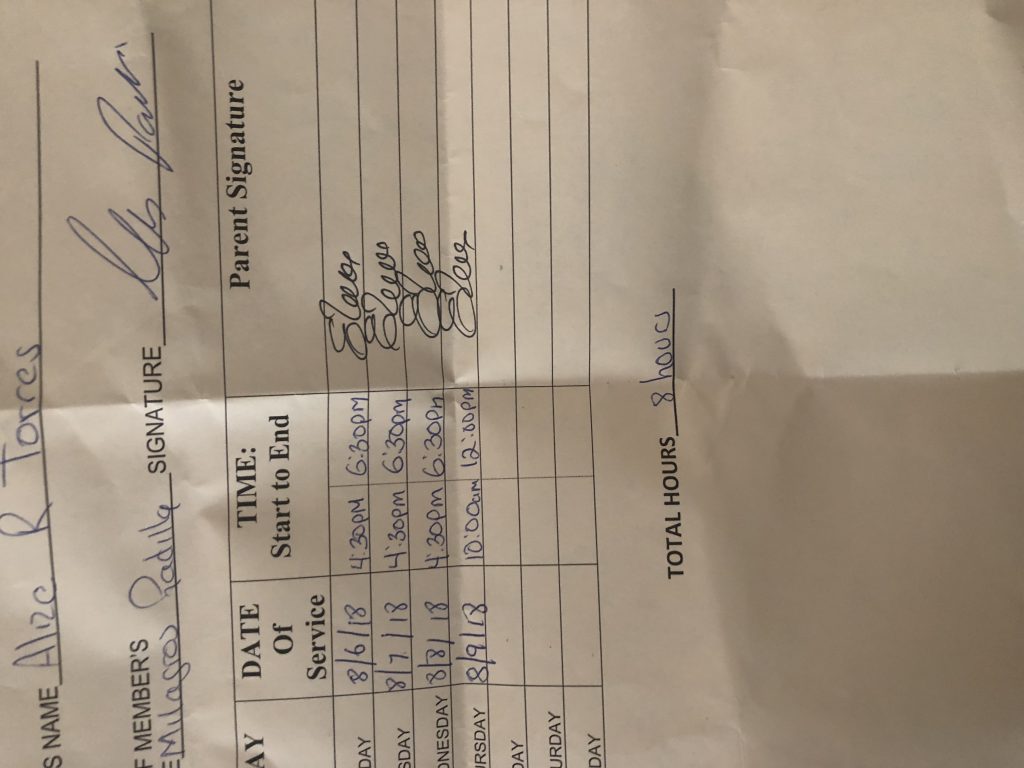 S NAME Alize R Torres
F MEMBER'S
E Milagros Padilla SIGNATURE
AY DATE Of Service TIME: Start to End Parent Signature
DAY 8/6/18 4:30PM 6:30PM
SDAY 8/7/18 4:30pm 6:30pm
DNESDAY 8/8/18 4:30pm 6:30pm
URSDAY 8/9/18 10:00am 12:00pm
DAY
URDAY
DAY
TOTAL HOURS 8 hours